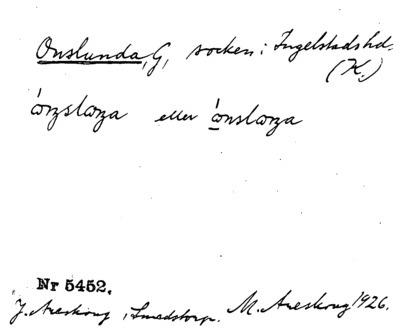 Onslunda, G, socken i Ingelstads hd.
(K.)
eller
Nr 5452.
J. Areskoug, Smedstorp. M. Areskoug 1926.